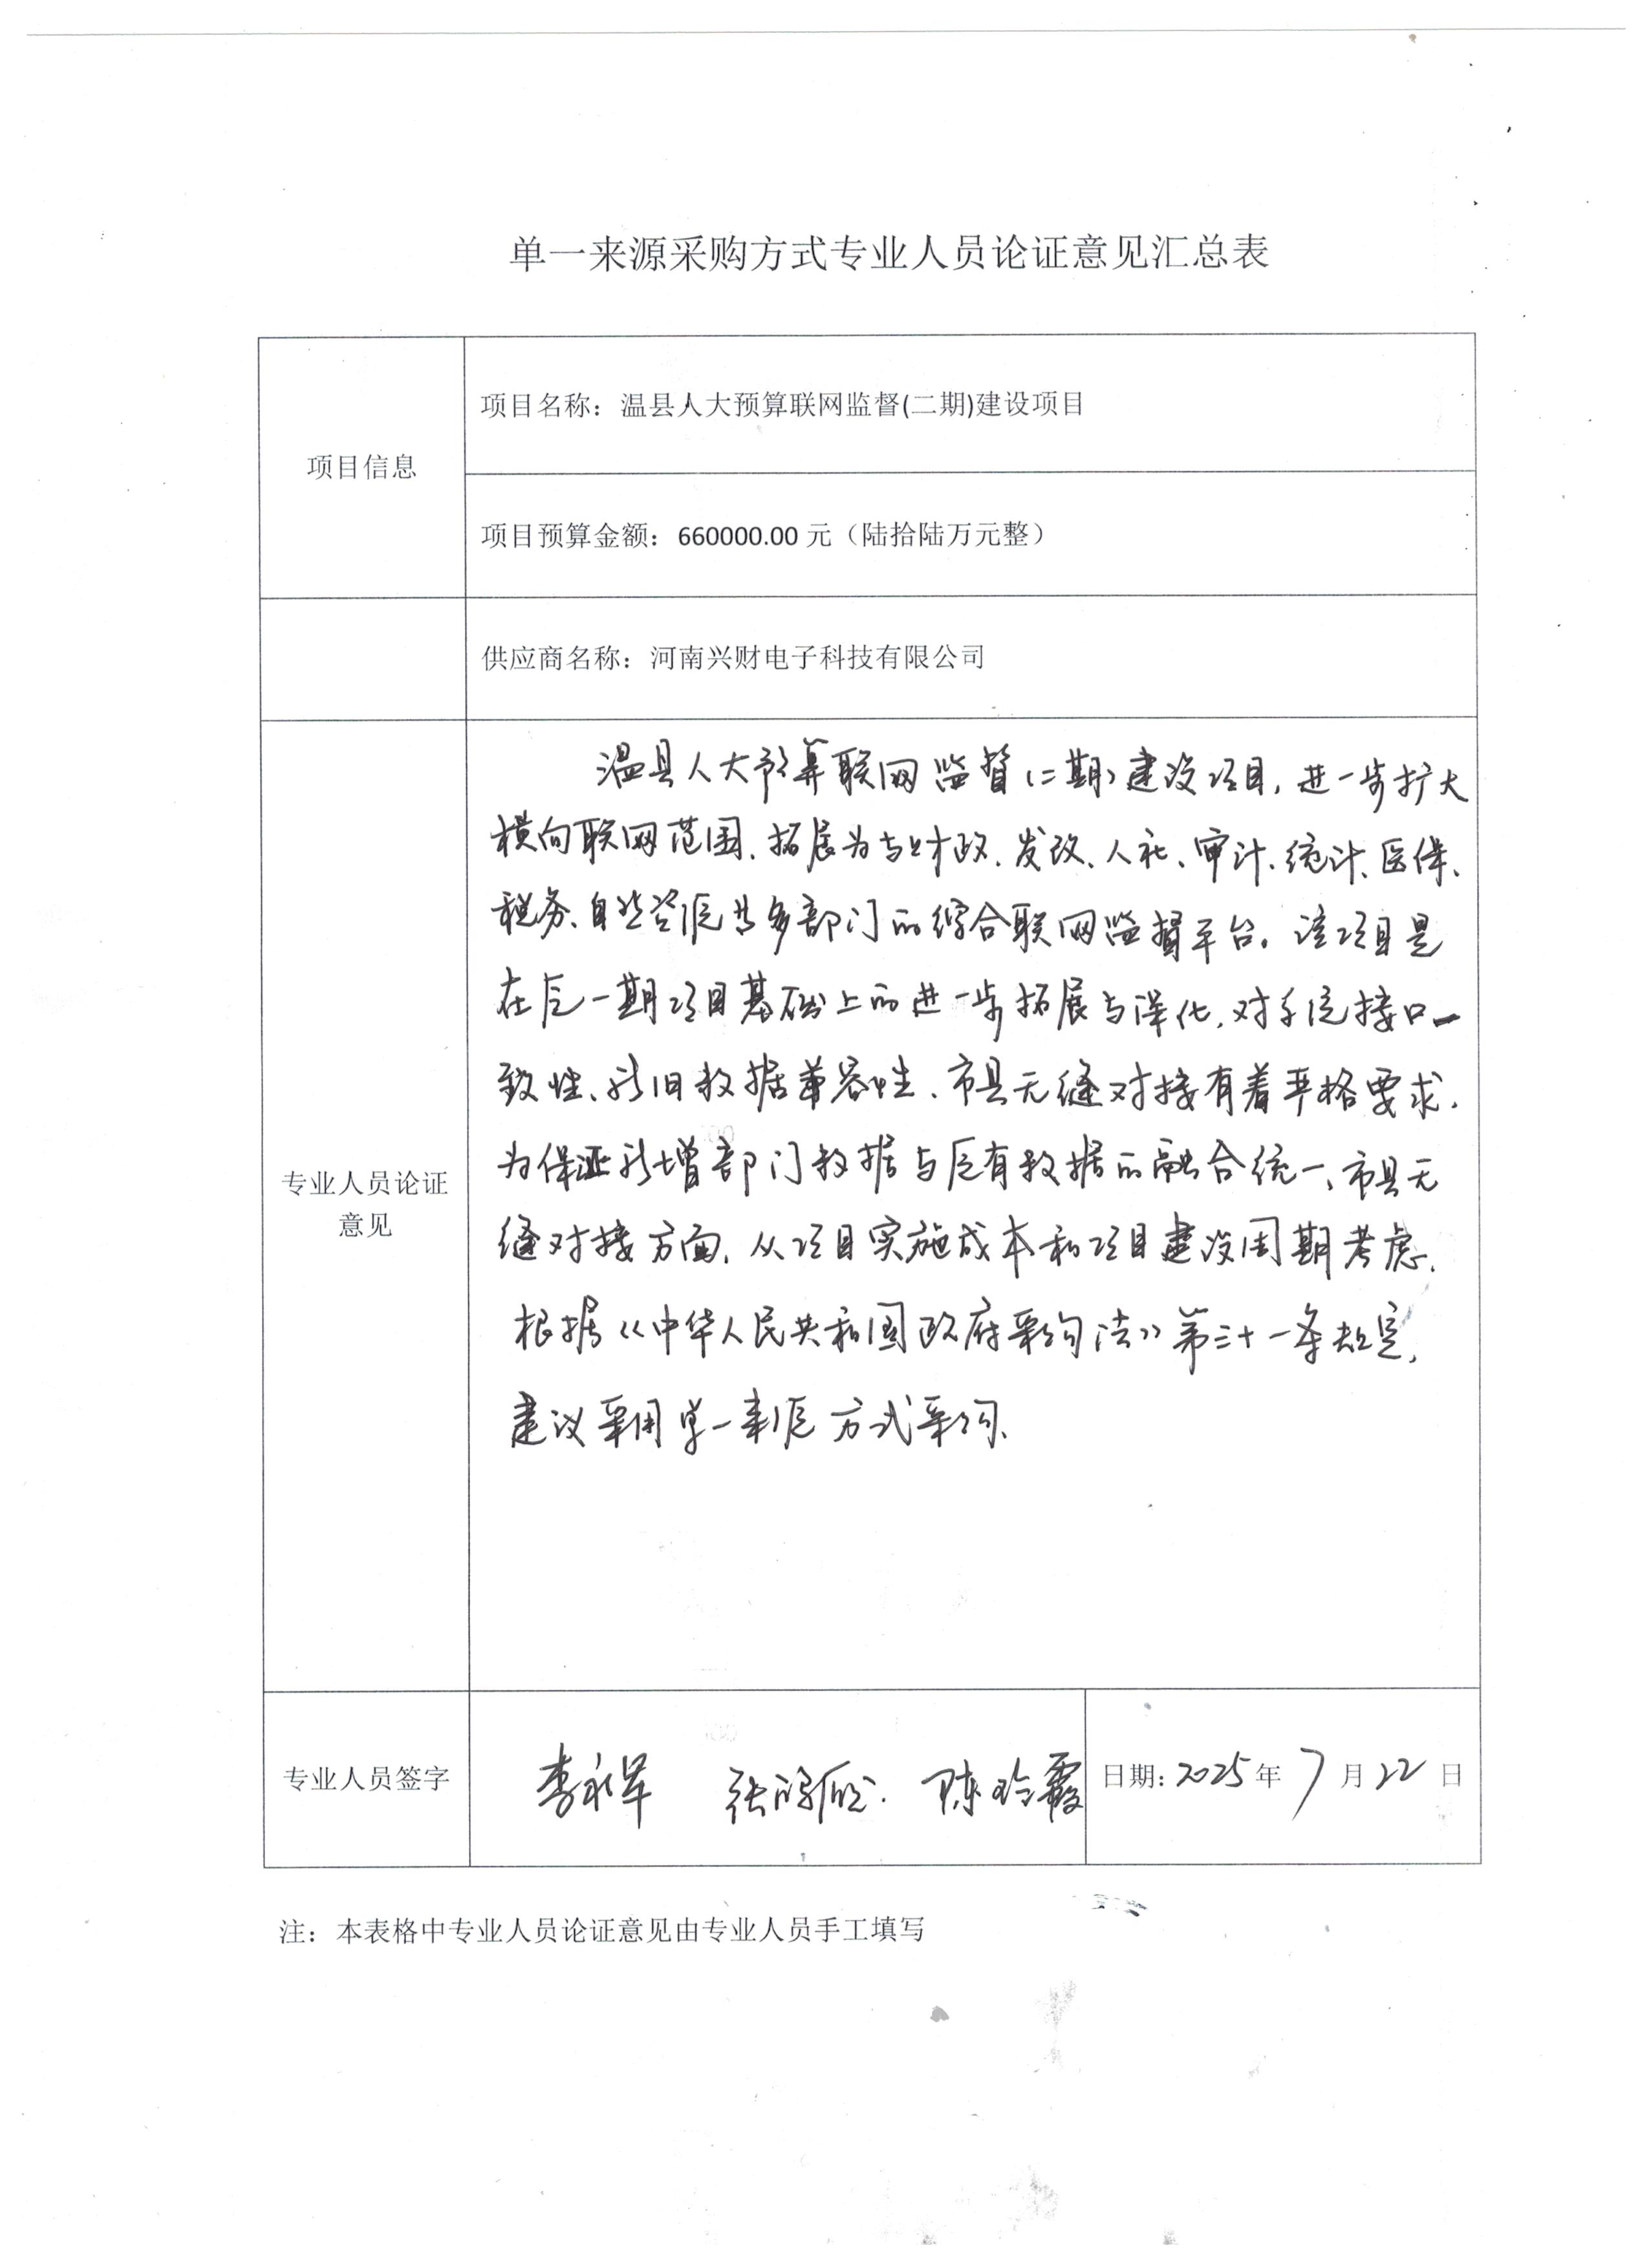 单一来源采购方式专业人员论证意见汇总表
项目信息
项目名称：温县人大预算联网监督(二期)建设项目
项目预算金额：660000.00 元（陆拾陆万元整）
供应商名称：河南兴财电子科技有限公司
专业人员论证
意见
温县人大预算联网监督(二期)建设项目，进一步扩大
横向联网范围、拓展为与财政、发改、人社、审计、统计、医保、
税务、自然资源共多部门的综合联网监督平台。该项目是
在原一期项目基础上的进一步拓展与深化，对系统接口一
致性、新旧数据兼容性、市县无缝对接有着严格要求，
为保证新增部门数据与原有数据的融合统一、市县无
缝对接方面，从项目实施成本和项目建设周期考虑，
根据《中华人民共和国政府采购法》第三十一条规定，
建议采用单一来源方式采购、
专业人员签字
李永军 陈玲霞
日期：2025年7月22日
注：本表格中专业人员论证意见由专业人员手工填写